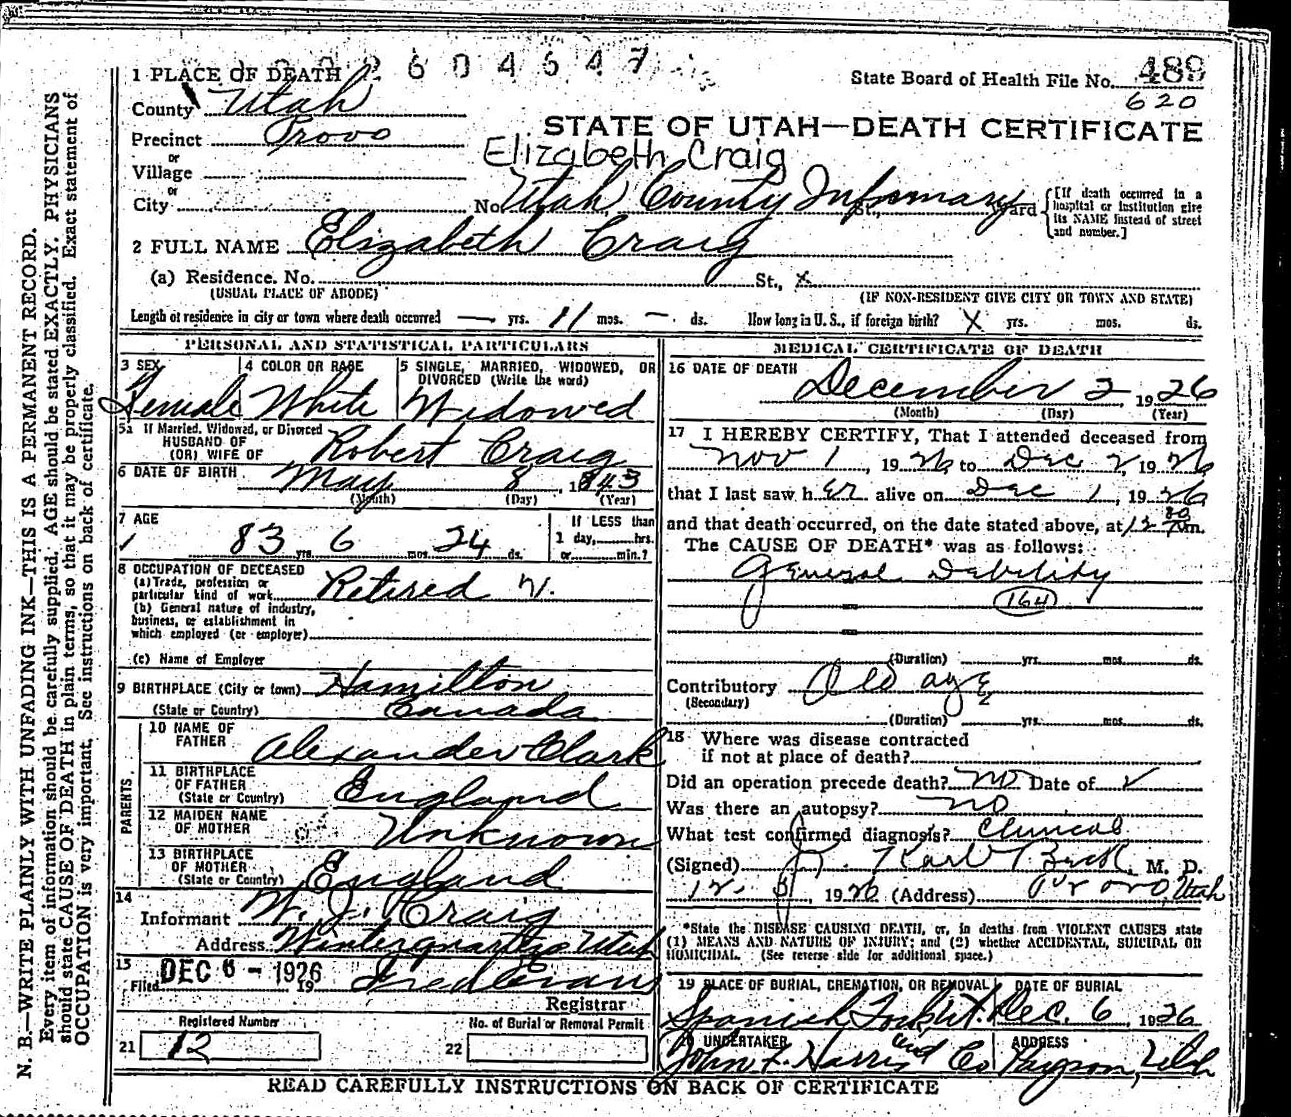 2604547
1 PLACE OF DEATH
State Board of Health File No. 489
620
County Utah
Precinct Provo
STATE OF UTAH—DEATH CERTIFICATE
Elizabeth Craig
or
Village
or
City No. Utah County Infirmary St., Ward
[If death occurred in a hospital or institution give its NAME instead of street and number.]
2 FULL NAME Elizabeth Craig
(a) Residence. No. St., x
(USUAL PLACE OF ABODE) (IF NON-RESIDENT GIVE CITY OR TOWN AND STATE)
Length of residence in city or town where death occurred — yrs. 11 mos. — ds. How long in U. S., if foreign birth? X yrs. mos. ds.
PERSONAL AND STATISTICAL PARTICULARS
3 SEX 4 COLOR OR RACE 5 SINGLE, MARRIED, WIDOWED, OR
DIVORCED (Write the word)
Female White Widowed
5a If Married, Widowed, or Divorced
HUSBAND OF
(OR) WIFE OF Robert Craig
6 DATE OF BIRTH May 8, 1843
(Month) (Day) (Year)
7 AGE
83 yrs. 6 mos. 24 ds.
If LESS than
1 day, hrs.
or min.?
8 OCCUPATION OF DECEASED
(a) Trade, profession or
particular kind of work Retired
(b) General nature of industry,
business, or establishment in
which employed (or employer)
(c) Name of Employer
9 BIRTHPLACE (City or town) Hamilton
(State or Country) Canada
PARENTS
10 NAME OF
FATHER Alexander Clark
11 BIRTHPLACE
OF FATHER
(State or Country) England
12 MAIDEN NAME
OF MOTHER Unknown
13 BIRTHPLACE
OF MOTHER
(State or Country) England
14
Informant W. J. Craig
Address Winterquarters Utah
15
Filed DEC 6 - 1926 19 Fred Evans
Registrar
Registered Number
21 12
No. of Burial or Removal Permit
22
MEDICAL CERTIFICATE OF DEATH
16 DATE OF DEATH
December 2, 1926
(Month) (Day) (Year)
17 I HEREBY CERTIFY, That I attended deceased from
Nov 1, 1926 to Dec 2 1926
that I last saw her alive on Dec 1, 1926
and that death occurred, on the date stated above, at 12 m.
The CAUSE OF DEATH* was as follows:
General Debility
164
(Duration) yrs. mos. ds.
Contributory Old age
(Secondary)
(Duration) yrs. mos. ds.
18 Where was disease contracted
if not at place of death?
Did an operation precede death? No Date of
Was there an autopsy? no
What test confirmed diagnosis? Clinical
(Signed) J. Karl Beck, M. D.
12. 3, 1926 (Address) Provo, Utah
*State the DISEASE CAUSING DEATH, or, in deaths from VIOLENT CAUSES state
(1) MEANS AND NATURE OF INJURY; and (2) whether ACCIDENTAL, SUICIDAL OR
HOMICIDAL. (See reverse side for additional space.)
19 PLACE OF BURIAL, CREMATION, OR REMOVAL DATE OF BURIAL
Spanish Fork Ut. Dec. 6, 1926
20 UNDERTAKER ADDRESS
John F. Harris and Co Payson, Utah
READ CAREFULLY INSTRUCTIONS ON BACK OF CERTIFICATE
N. B.—WRITE PLAINLY WITH UNFADING INK—THIS IS A PERMANENT RECORD.
Every item of information should be carefully supplied. AGE should be stated EXACTLY. PHYSICIANS
should state CAUSE OF DEATH in plain terms, so that it may be properly classified. Exact statement of
OCCUPATION is very important. See instructions on back of certificate.